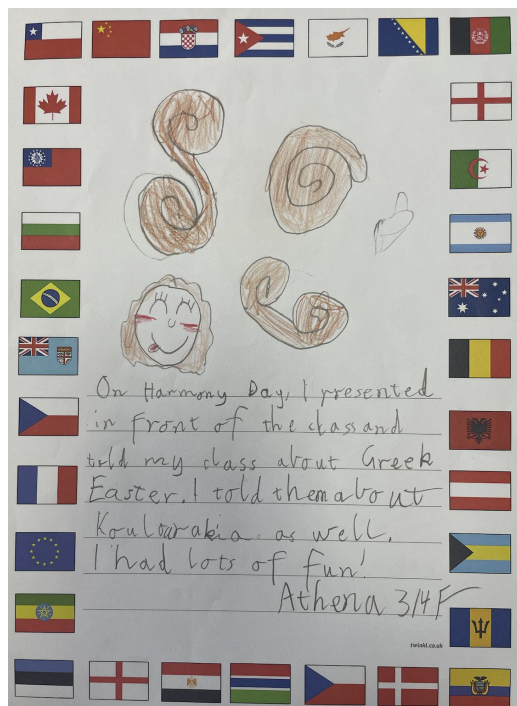 On Harmony Day, I presented
in front of the class and
told my class about Greek
Easter. I told them about
Koulourakia as well.
I had lots of fun!
Athena 3/4F
twinkl.co.uk